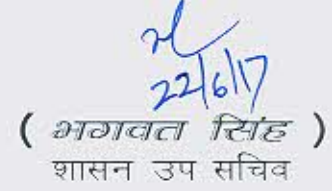 22/6/17
( भगवत सिंह )
शासन उप सचिव